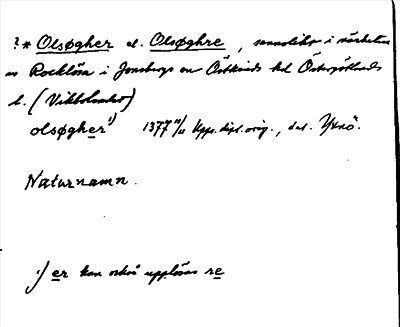 ?* Olsøgher el. Olsøghre, sannolikt i närheten
av Rocklösa i Jonsbergs sn Östkinds hd Östergötlands
l. (Vikbolandet)
olsøgher¹) 1377 11/11 Upps. dipl. orig., dat. Ytnö.
Naturnamn.
¹) er kan också upplösas re